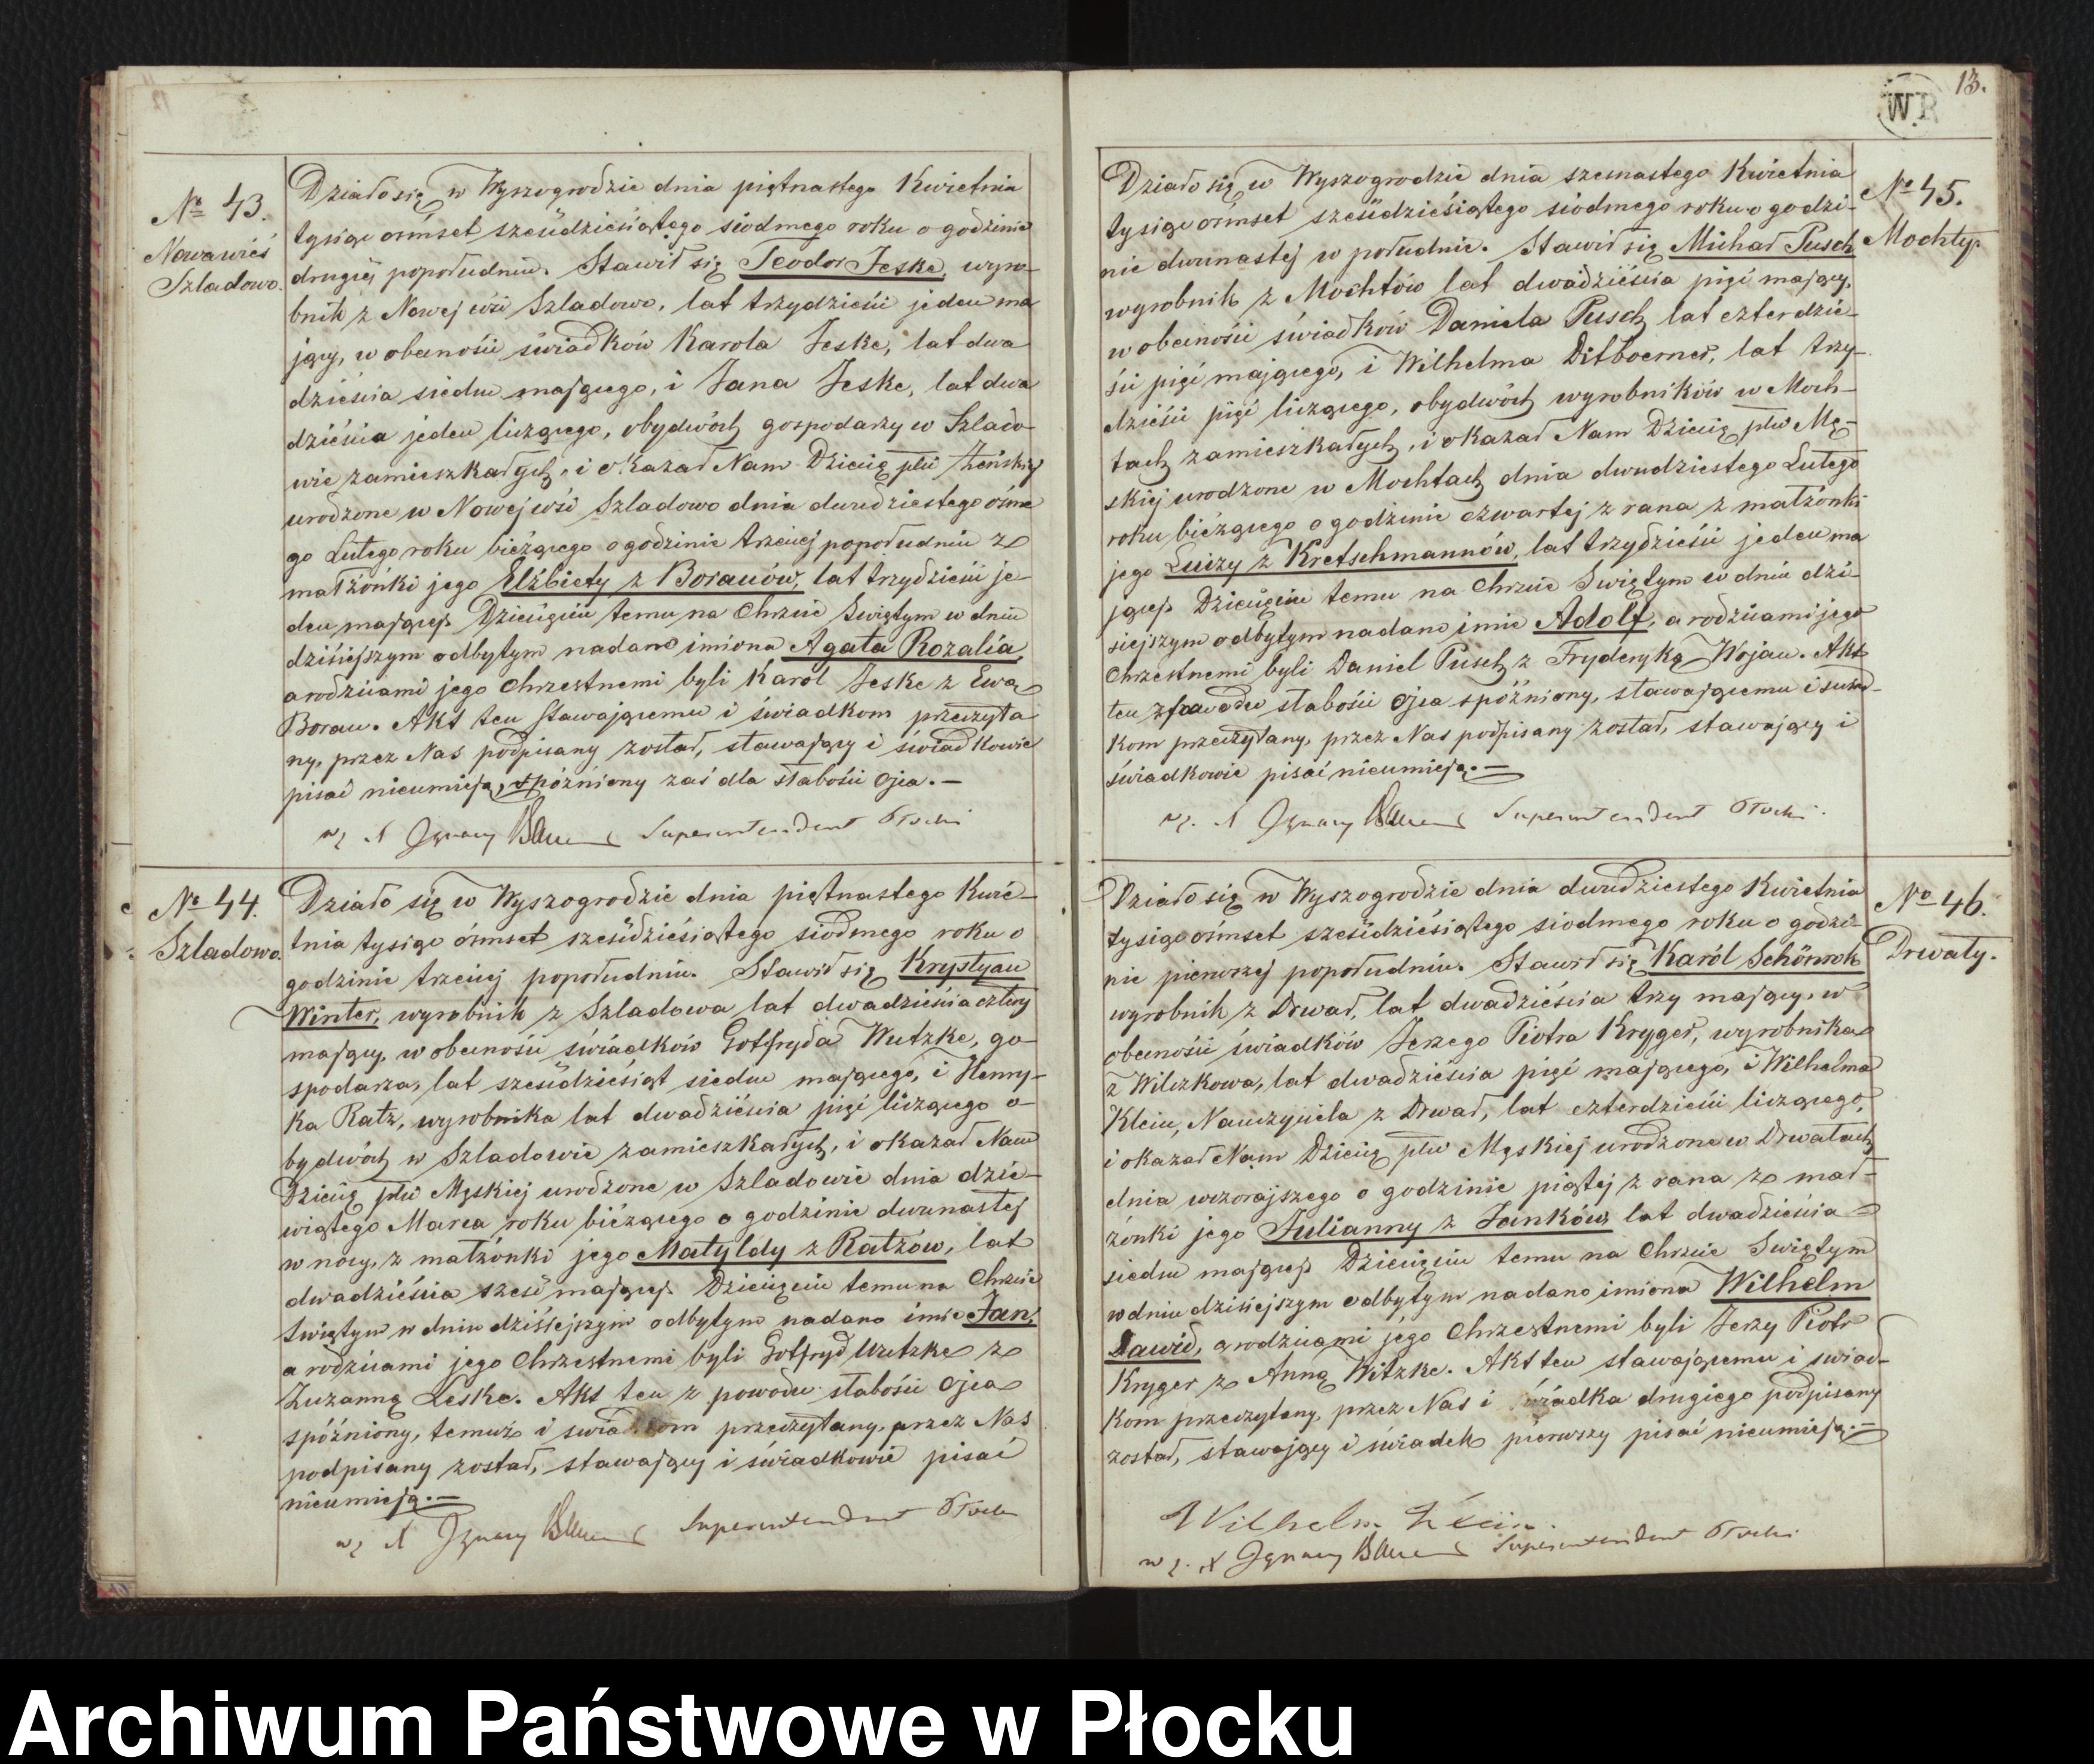 № 43.
Nowawieś
Szladowo.
Działo się w Wyszogrodzie dnia piętnastego Kwietnia
tysiąc ośmset sześćdziesiątego siódmego roku o godzinie
drugiej popołudniu. Stawił się Teodor Jeske, wyro-
bnik z Nowej wsi Szladowo, lat trzydzieści jeden ma
jący, w obecności świadków Karola Jeske, lat dwa
dzieścia siedm mającego, i Jana Jeske, lat dwa
dzieścia jeden liczącego, obydwóch gospodarzy w Szlado-
wie zamieszkałych, i okazał Nam Dziecię płci Żeńskiej
urodzone w Nowej wsi Szladowo dnia dwudziestego ósme
go Lutego roku bieżącego o godzinie trzeciej popołudniu z
małżonki jego Elżbiety z Borauów, lat trzydzieści je-
den mającej. Dziecięciu temu na Chrzcie Swiętym w dniu
dzisiejszym odbytym nadano imiona Agata Rozalia,
a rodzicami jego Chrzestnemi byli Karol Jeske z Ewą
Borau. Akt ten stawającemu i świadkom przeczyta
ny, przez Nas podpisany został, stawający i świadkowie
pisać nieumieją, opóźniony zaś dla słabości Ojca.—
Ignacy Superintendent Płocki
№ 44.
Szladowo.
Działo się w Wyszogrodzie dnia piętnastego Kwie-
tnia tysiąc ośmset sześćdziesiątego siódmego roku o
godzinie trzeciej popołudniu. Stawił się Krystyan
Winter, wyrobnik z Szladowa lat dwadzieścia cztery
mający, w obecności świadków Gotfryda Wutzke, go-
spodarza, lat sześćdziesiąt siedm mającego, i Henry-
ka Ratz, wyrobnika lat dwadzieścia pięć liczącego o-
bydwóch w Szladowie zamieszkałych, i okazał Nam
Dziecię płci Męskiej urodzone w Szladowie dnia dzie-
wiątego Marca roku bieżącego o godzinie dwunastej
w nocy, z małżonki jego Matyldy z Ratzów, lat
dwadzieścia sześć mającej. Dziecięciu temu na Chrzcie
Swiętym w dniu dzisiejszym odbytym nadano imie Jan,
a rodzicami jego Chrzestnemi byli Gotfryd Wutzke z
Zuzanną Leske. Akt ten z powodu słabości Ojca
spóźniony, temuż i świadkom przeczytany, przez Nas
podpisany został, stawający i świadkowie pisać
nieumieją.—
Ignacy Superintendent Płocki
13.
W.R
№ 45.
Mochty.
Działo się w Wyszogrodzie dnia szesnastego Kwietnia
tysiąc ośmset sześćdziesiątego siódmego roku o godzi-
nie dwunastej w południe. Stawił się Michał Pusch
wyrobnik z Mochtów lat dwadzieścia pięć mający,
w obecności świadków Daniela Pusch lat czterdzie-
ści pięć mającego, i Wilhelma Ditboerner, lat trzy-
dzieści pięć liczącego, obydwóch wyrobników w Moch-
tach zamieszkałych, i okazał Nam Dziecię płci Mę-
skiej urodzone w Mochtach dnia dwudziestego Lutego
roku bieżącego o godzinie czwartej z rana z małżonki
jego Luizy z Kretschmannów, lat trzydzieści jeden ma
jącej. Dziecięciu temu na Chrzcie Swiętym w dniu dzi-
siejszym odbytym nadano imie Adolf, a rodzicami jego
Chrzestnemi byli Daniel Pusch z Fryderyką Wojau. Akt
ten z powodu słabości Ojca spóźniony, stawającemu i świad-
kom przeczytany, przez Nas podpisany został, stawający i
świadkowie pisać nieumieją.—
Ignacy Superintendent Płocki.
№ 46.
Drwały.
Działo się w Wyszogrodzie dnia dwudziestego Kwietnia
tysiąc ośmset sześćdziesiątego siódmego roku o godzi-
nie pierwszej popołudniu. Stawił się Karól Schönrok
wyrobnik z Drwał, lat dwadzieścia trzy mający, w
obecności świadków Jerzego Piotra Kryger, wyrobnika
z Wilczkowa, lat dwadzieścia pięć mającego, i Wilhelma
Klein, Nauczyciela z Drwał, lat czterdzieści liczącego,
i okazał Nam Dziecię płci Męskiej urodzone w Drwałach
dnia wczorajszego o godzinie piątej z rana z mał-
żonki jego Julianny z Janków lat dwadzieścia
siedm mającej. Dziecięciu temu na Chrzcie Swiętym
w dniu dzisiejszym odbytym nadano imiona Wilhelm
Dawid, a rodzicami jego Chrzestnemi byli Jerzy Piotr
Kryger z Anną Witzke. Akt ten stawającemu i świad-
kom przeczytany, przez Nas i świadka drugiego podpisany
został, stawający i świadek pierwszy pisać nieumieją.—
Wilhelm Klein.
Ignacy Superintendent Płocki
Archiwum Państwowe w Płocku